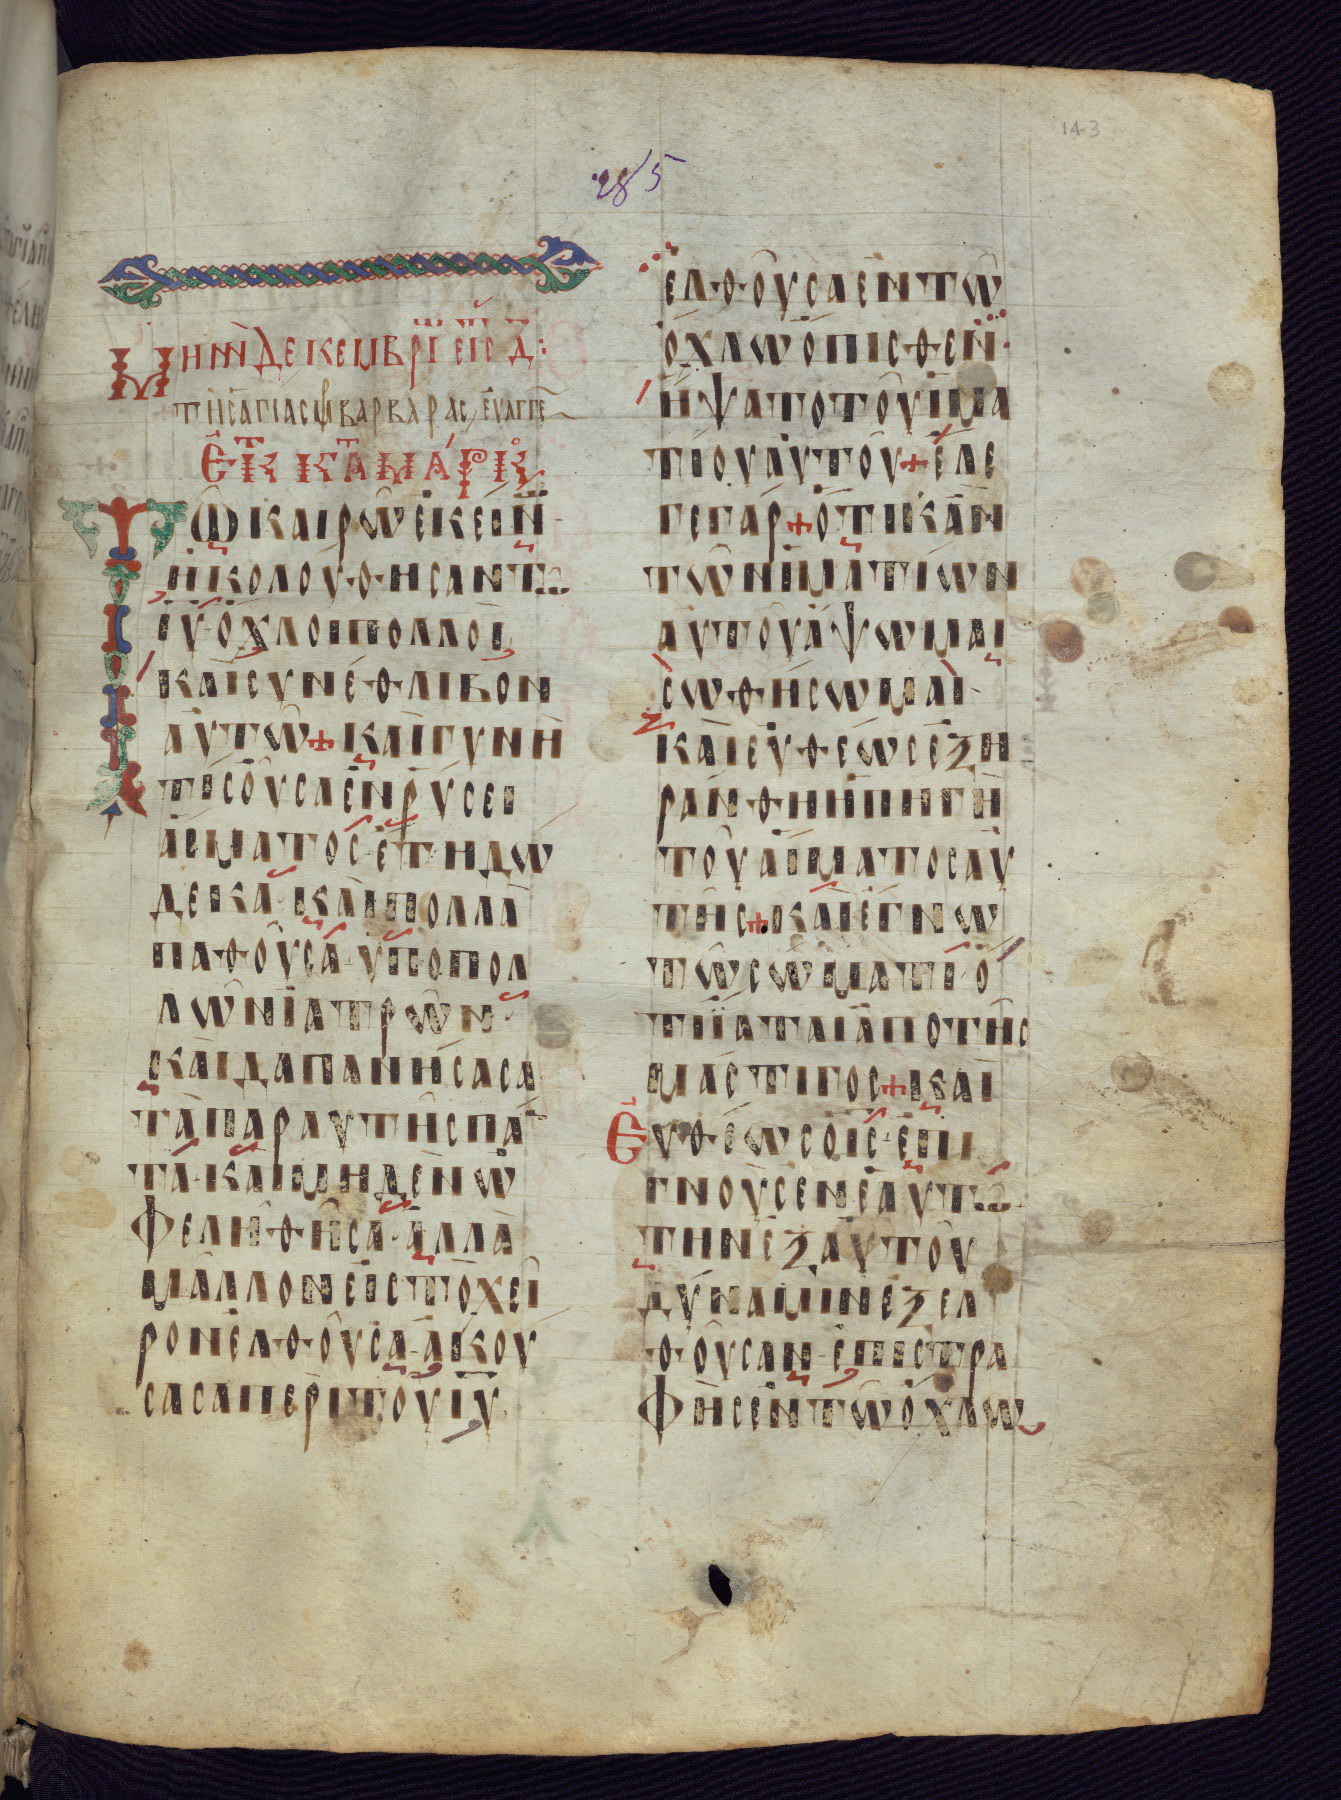 143
285
ΜΗΝΙ ΔΕΚΕΜΒΡΙ ΕΙΣ Δ:
ΤΗΣ ΑΓΙΑΣ ΒΑΡΒΑΡΑΣ ΕΥΑΓΓΕ
ΕΚ Κ ΜΑΡΚ
ΤΩ ΚΑΙΡΩ ΕΚΕΙΝ
ΗΚΟΛΟΥΘΗΣΑΝ ΤΩ
ΙΥ ΟΧΛΟΙ ΠΟΛΛΟΙ
ΚΑΙ ΣΥΝΕΘΛΙΒΟΝ
ΑΥΤΩ + ΚΑΙ ΓΥΝΗ
ΤΙΣ ΟΥΣΑ ΕΝ ΡΥΣΕΙ
ΑΙΜΑΤΟΣ ΕΤΗ ΔΩ
ΔΕΚΑ ΚΑΙ ΠΟΛΛΑ
ΠΑΘΟΥΣΑ ΥΠΟ ΠΟΛ
ΛΩΝ ΙΑΤΡΩΝ
ΚΑΙ ΔΑΠΑΝΗΣΑΣΑ
ΤΑ ΠΑΡ ΑΥΤΗΣ ΠΑ
ΤΑ ΚΑΙ ΜΗΔΕΝ Ω
ΦΕΛΗΘΗΣΑ ΑΛΛΑ
ΜΑΛΛΟΝ ΕΙΣ ΤΟ ΧΕΙ
ΡΟΝ ΕΛΘΟΥΣΑ ΑΚΟΥ
ΣΑΣΑ ΠΕΡΙ ΤΟΥ ΙΥ
ΕΛΘΟΥΣΑ ΕΝ ΤΩ
ΟΧΛΩ ΟΠΙΣΘΕΝ
ΗΨΑΤΟ ΤΟΥ ΙΜΑ
ΤΙΟΥ ΑΥΤΟΥ + ΕΛΕ
ΓΕ ΓΑΡ + ΟΤΙ ΚΑΝ
ΤΩΝ ΙΜΑΤΙΩΝ
ΑΥΤΟΥ ΑΨΩΜΑΙ
ΣΩΘΗΣΩΜΑΙ
ΚΑΙ ΕΥΘΕΩΣ ΕΞΗ
ΡΑΝΘΗ Η ΠΗΓΗ
ΤΟΥ ΑΙΜΑΤΟΣ ΑΥ
ΤΗΣ + ΚΑΙ ΕΓΝΩ
ΤΩ ΣΩΜΑΤΙ Ο
ΤΙ ΙΑΤΑΙ ΑΠΟ ΤΗΣ
ΜΑΣΤΙΓΟΣ + ΚΑΙ
ΕΥΘΕΩΣ Ο ΙΣ ΕΠΙ
ΓΝΟΥΣ ΕΝ ΕΑΥΤΩ
ΤΗΝ ΕΞ ΑΥΤΟΥ
ΔΥΝΑΜΙΝ ΕΞΕΛ
ΘΟΥΣΑΝ ΕΠΙΣΤΡΑ
ΦΗΣ ΕΝ ΤΩ ΟΧΛΩ